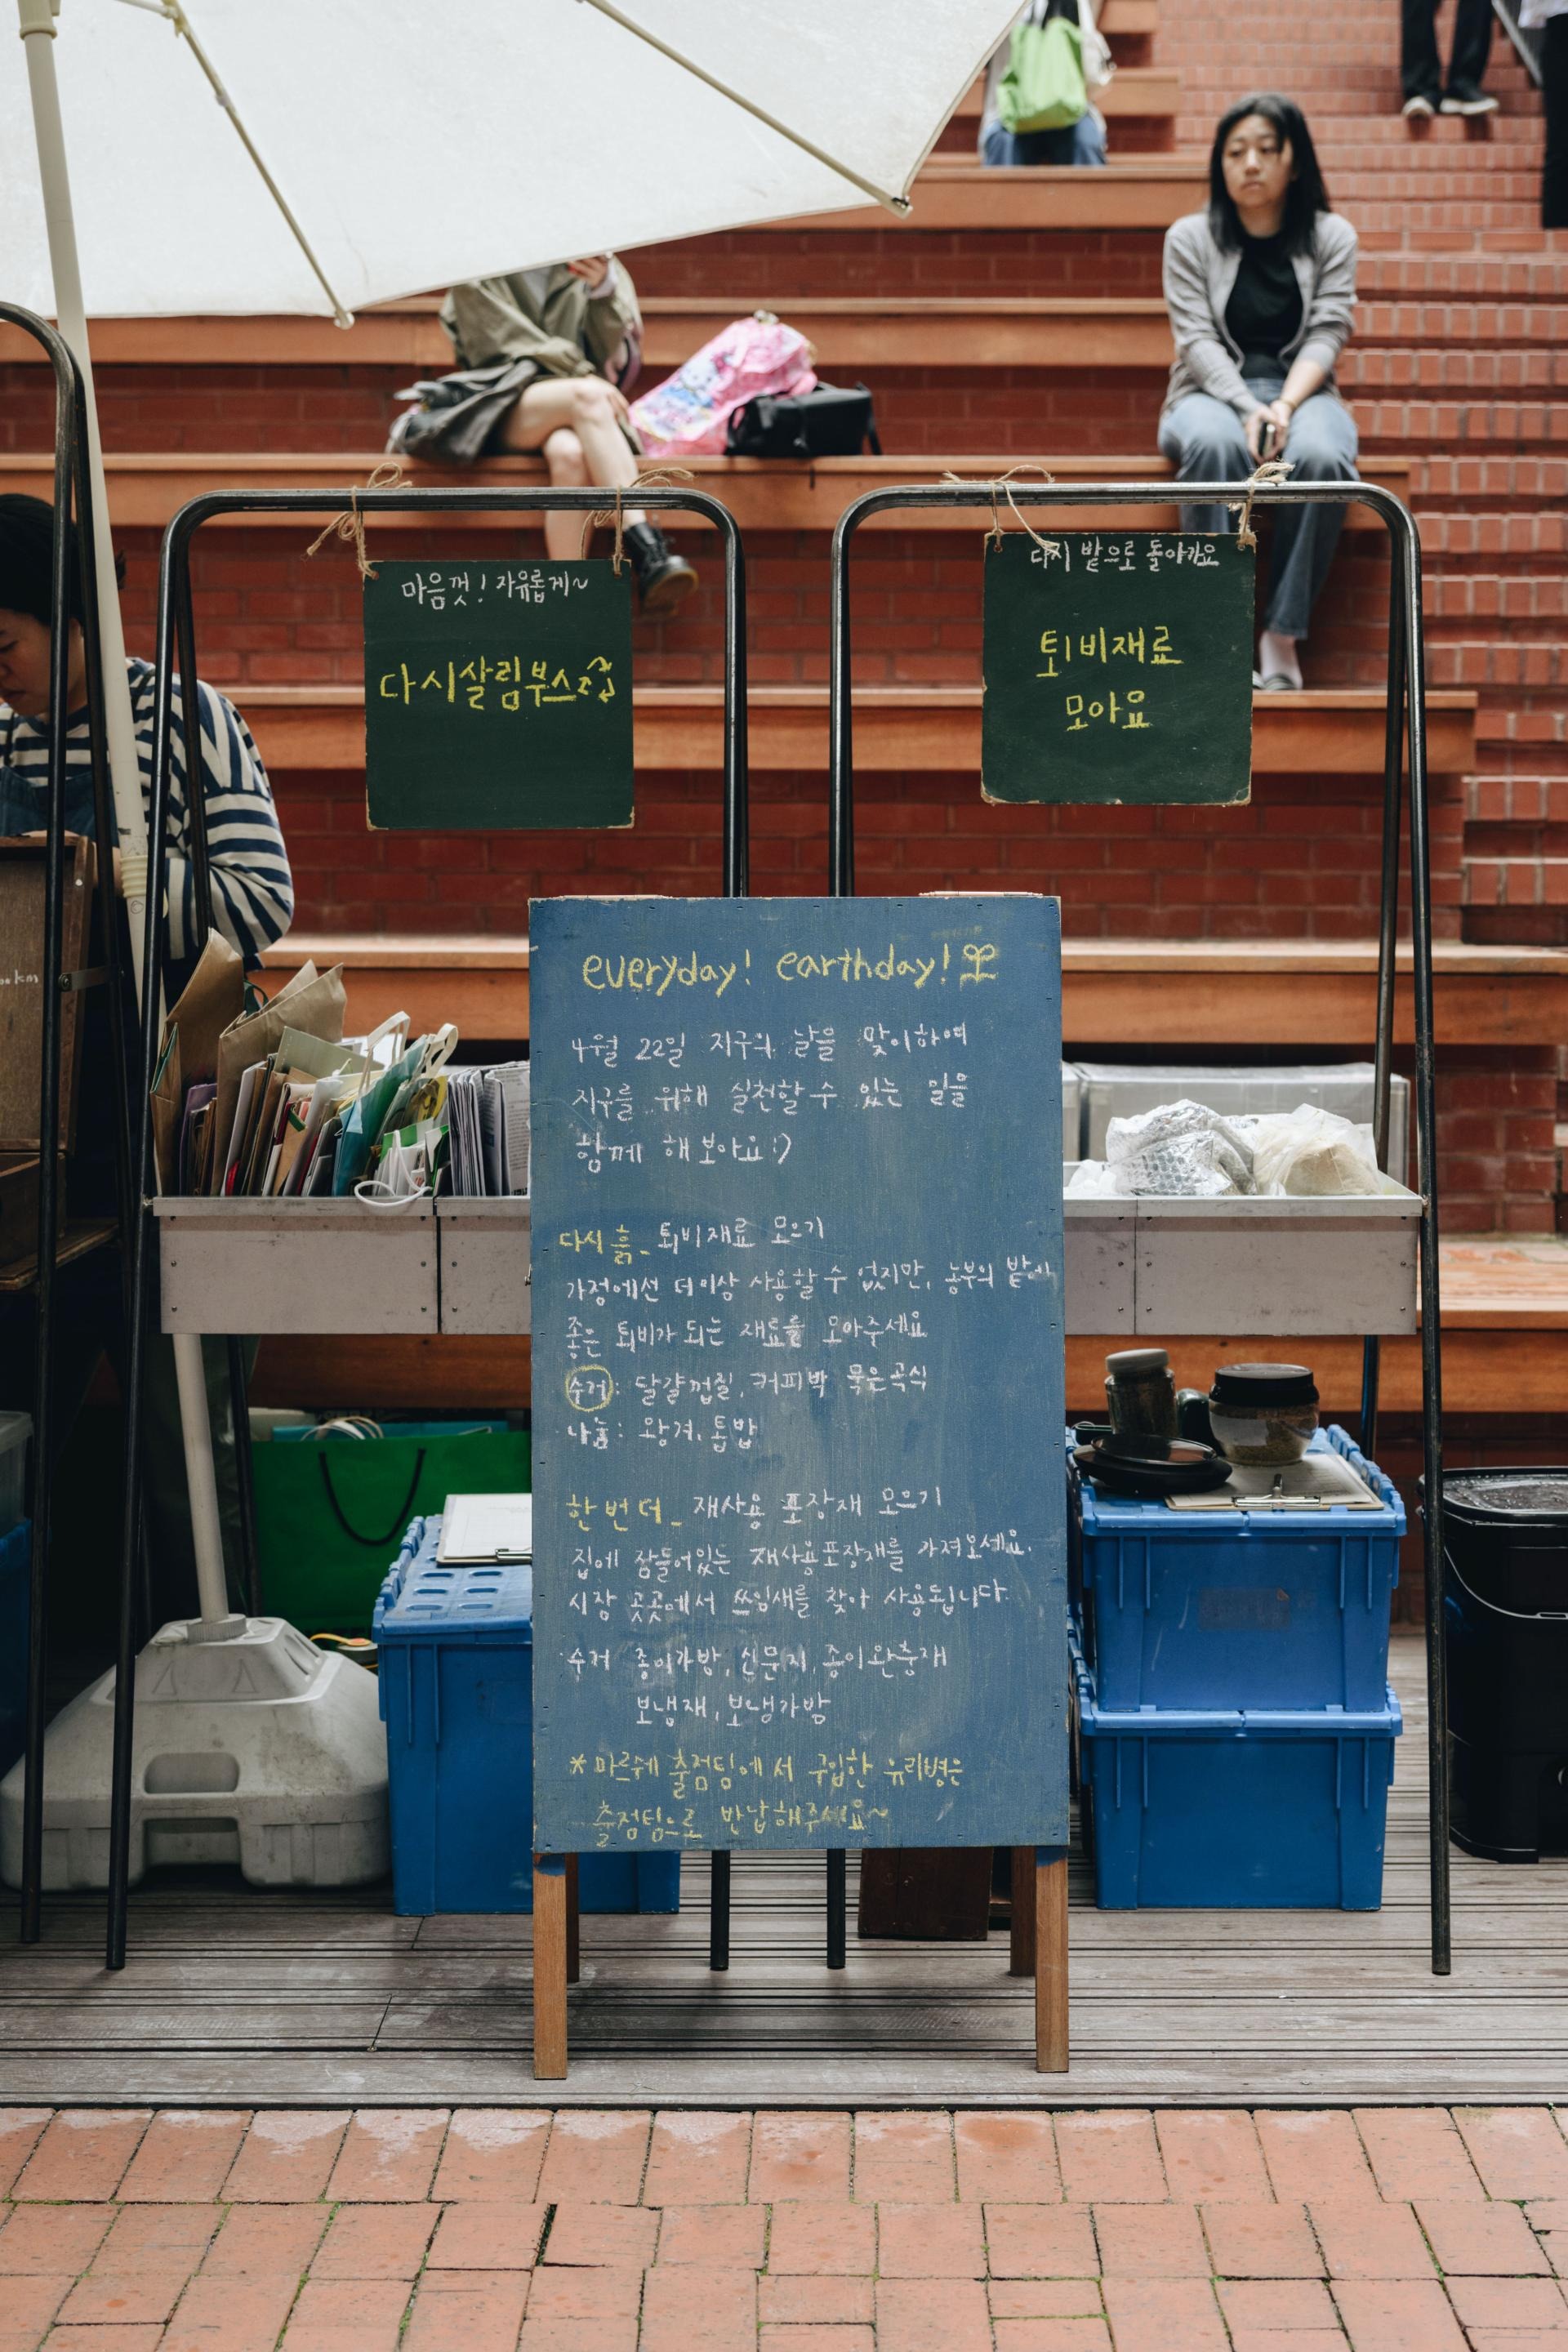 마음껏! 자유롭게~
다시살림부스
다시 밭으로 돌아가요
퇴비재료
모아요
everyday! earthday!
4월 22일 지구의 날을 맞이하여
지구를 위해 실천할 수 있는 일을
함께 해보아요:)
다시 흙_ 퇴비재료 모으기
가정에선 더이상 사용할 수 없지만, 농부의 밭에
좋은 퇴비가 되는 재료를 모아주세요
수거: 달걀껍질, 커피박 묵은곡식
나눔: 왕겨, 톱밥
한번더_ 재사용 포장재 모으기
집에 잠들어있는 재사용포장재를 가져오세요.
시장 곳곳에서 쓰임새를 찾아 사용됩니다.
·수거 종이가방, 신문지, 종이완충재
보냉재, 보냉가방
*마르쉐 출점팀에서 구입한 유리병은
출점팀으로 반납해주세요~